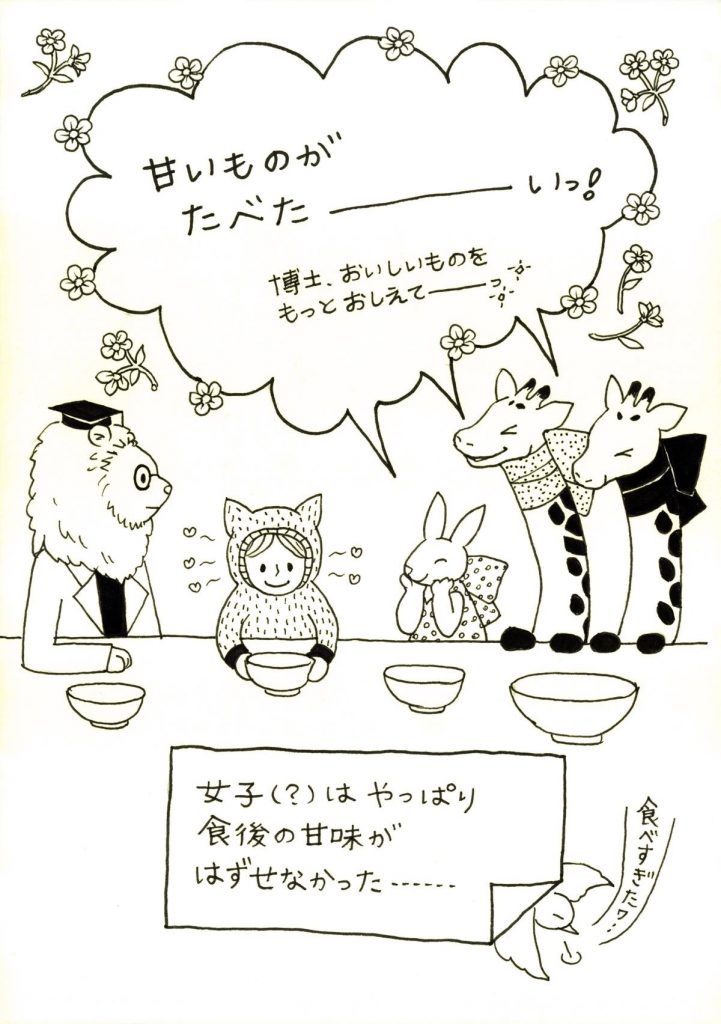 甘いものが
たべた――――いっ!
博士、おいしいものを
もっとおしえて――っ
女子(?)は やっぱり
食後の甘味が
はずせなかった……
食べすぎたワ…